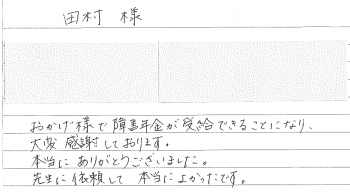 田村 様
おかげ様で障害年金が受給できることになり、
大変感謝しております。
本当にありがとうございました。
先生に依頼して本当によかったです。